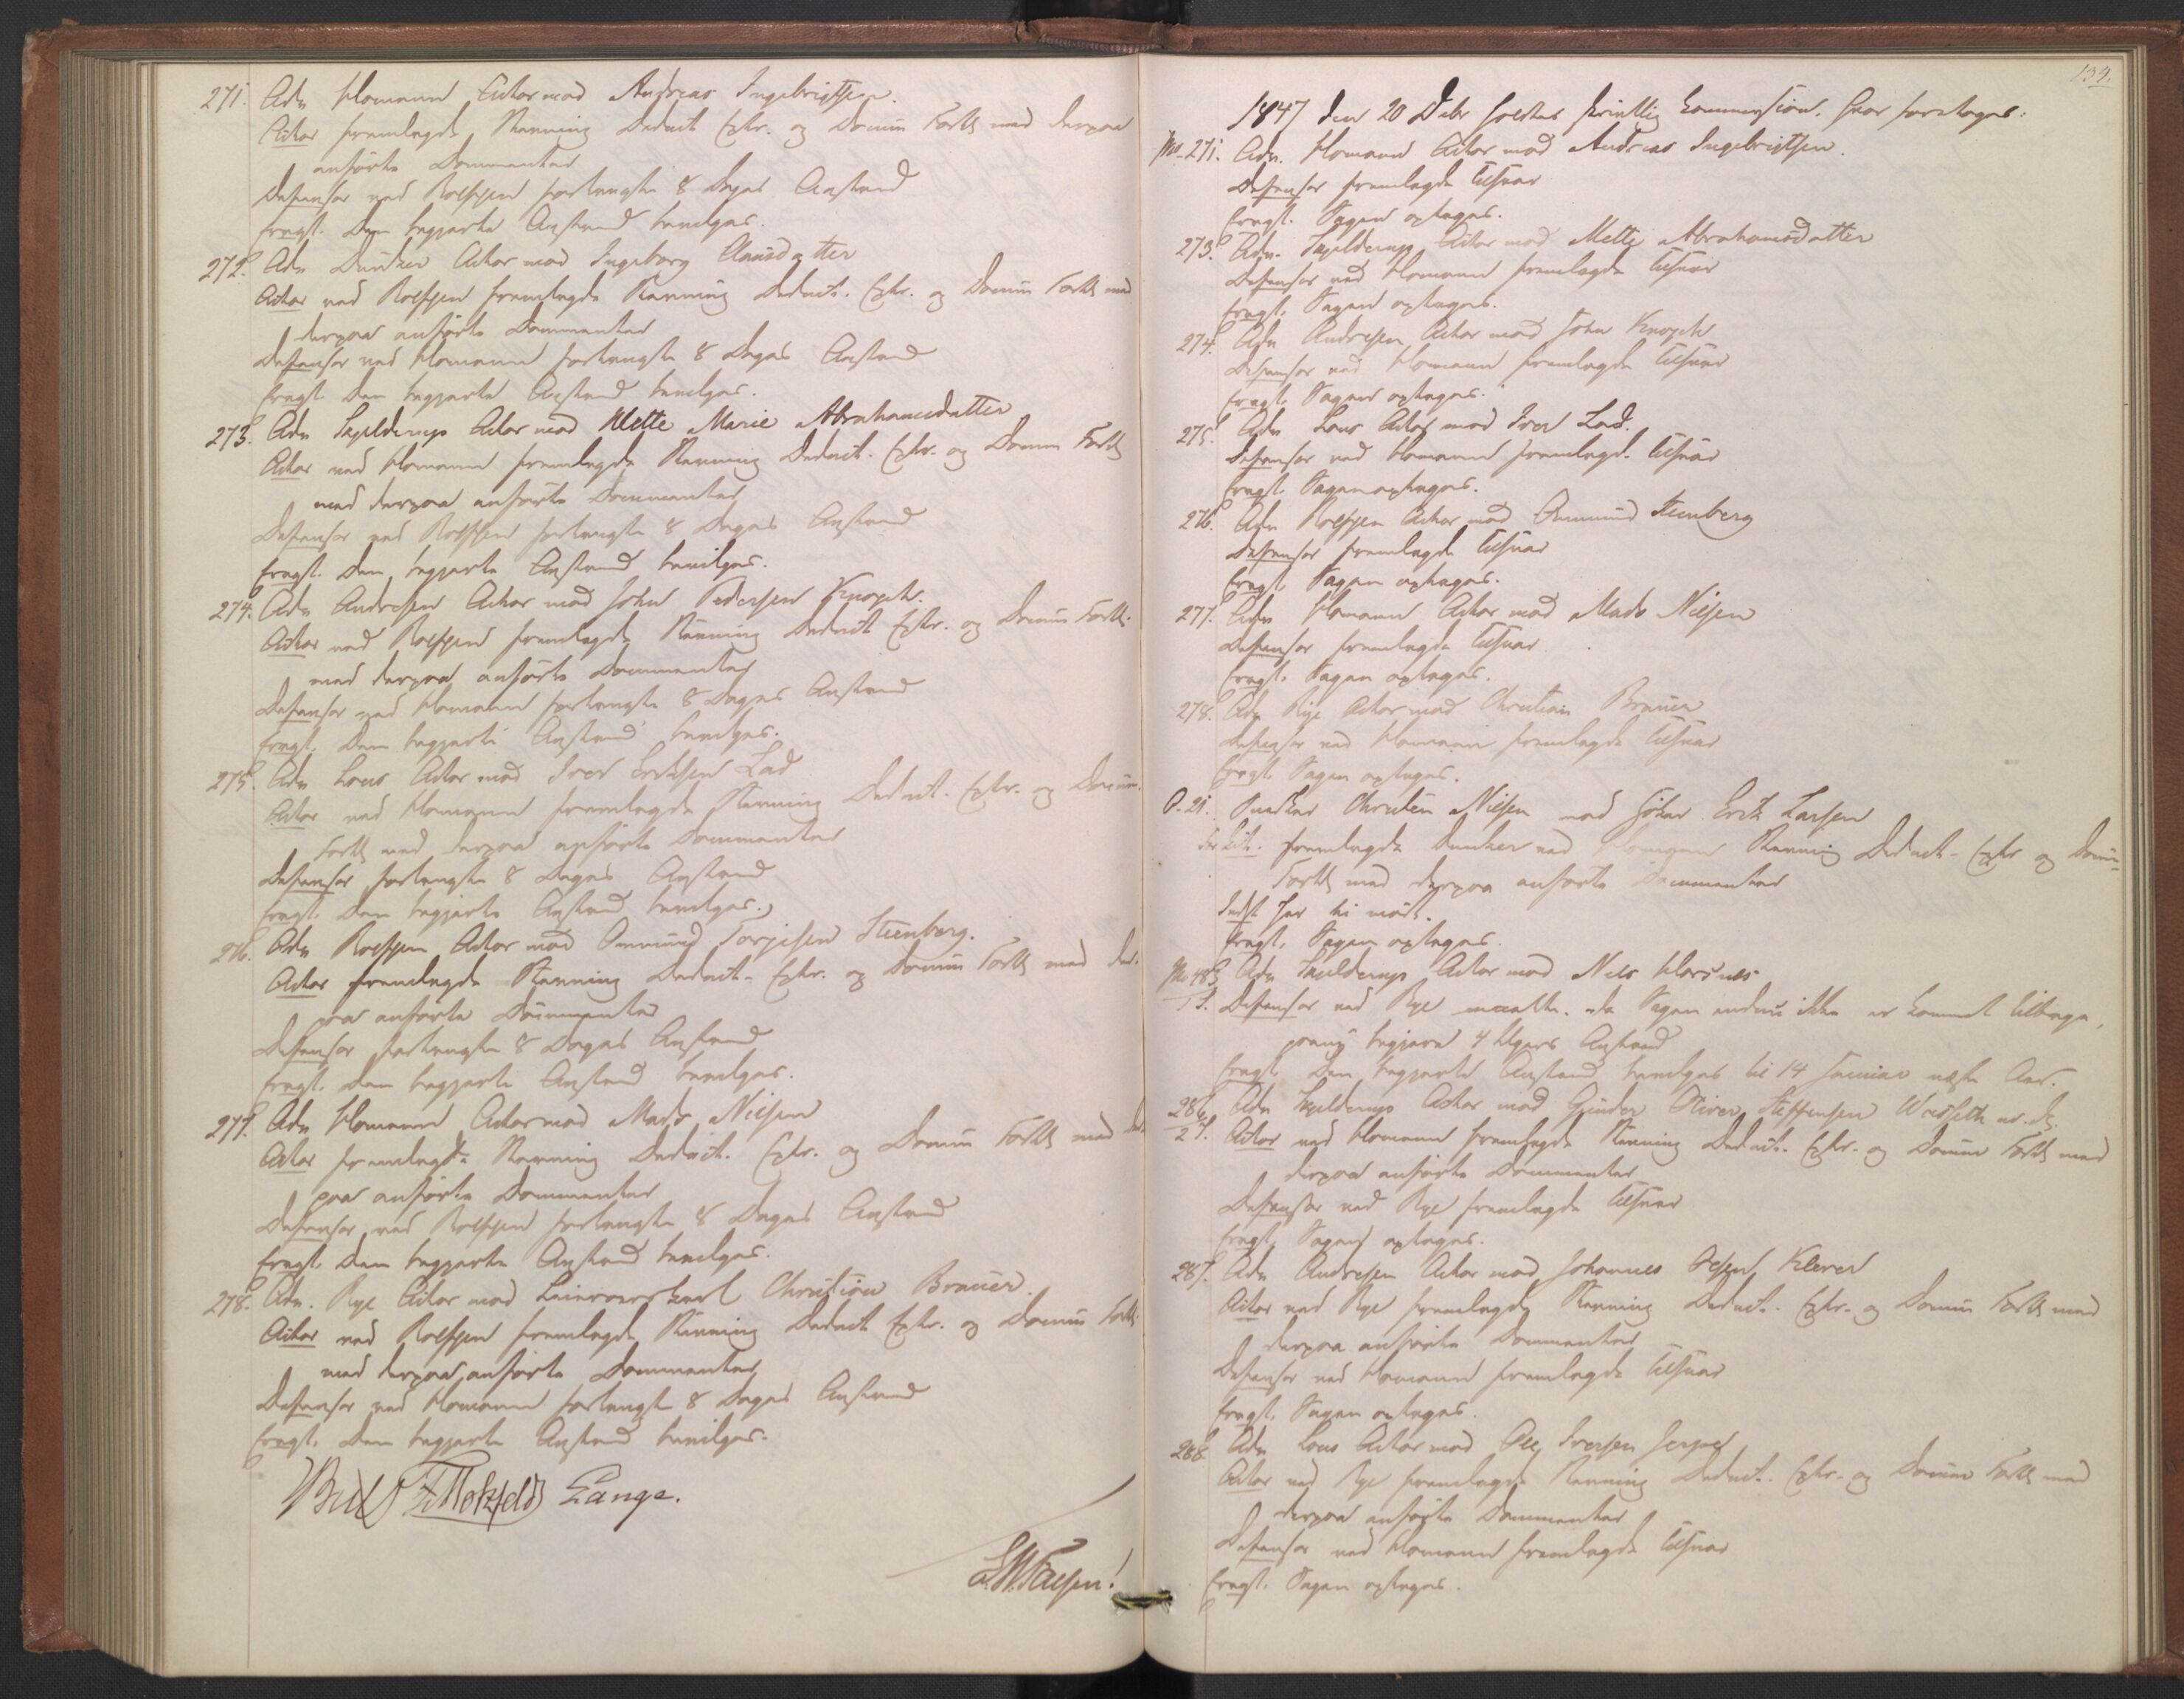 271. Adv. Homann Actor mod Andreas Ingebrigtsen.
Actor fremlagde Stevning Deduct. Extr. og Docum. Fortk. med derpaa
anførte Documenter
Defensor ved Rolfsen forlangte 8 Dages Anstand
Eragt. Den begjærte Anstand bevilges.
272. Adv. Dunker Actor mod Ingeborg Clausdatter
Actor ved Rolfsen fremlagde Stevning Deduct. Extr. og Docum. Fortk. med
derpaa anførte Documenter
Defensor ved Homann forlangte 8 Dages Anstand
Eragt. Den begjærte Anstand bevilges.
273. Adv. Skjelderup Actor mod Mette Marie Abrahamsdatter
Actor ved Homann fremlagde Stevning Deduct. Extr. og Docum. Fortk.
med derpaa anførte Documenter
Defensor ved Rolfsen forlangte 8 Dages Anstand
Eragt. Den begjærte Anstand bevilges.
274. Adv. Andresen Actor mod John Pedersen Knoph.
Actor ved Rolfsen fremlagde Stevning Deduct. Extr. og Docum. Fortk.
med derpaa anførte Documenter
Defensor ved Homann forlangte 8 Dages Anstand
Eragt. Den begjærte Anstand bevilges.
275. Adv. Lous Actor mod Iver Eriksen Lad
Actor ved Homann fremlagde Stevning Deduct. Extr. og Docum.
Fortk. med derpaa anførte Documenter
Defensor forlangte 8 Dages Anstand
Eragt. Den begjærte Anstand bevilges.
276. Adv. Rolfsen Actor mod Ommund Torgisen Steenberg.
Actor fremlagde Stevning Deduct. Extr. og Docum. Fortk. med der-
paa anførte Documenter
Defensor forlangte 8 Dages Anstand
Eragt. Den begjærte Anstand bevilges.
277. Adv. Homann Actor mod Mads Nilsen
Actor fremlagde Stevning Deduct. Extr. og Docum. Fortk. med der-
paa anførte Documenter
Defensor ved Rolfsen forlangte 8 Dages Anstand
Eragt. Den begjærte Anstand bevilges.
278. Adv. Rye Actor mod Christian Brauer.
Actor ved Rolfsen fremlagde Stevning Deduct. Extr. og Docum. Fortk.
med derpaa anførte Documenter
Defensor ved Homann forlangte 8 Dages Anstand
Eragt. Den begjærte Anstand bevilges.
Bull F. Motzfeldt Lange.
139.
1847 den 20 Debr holdtes skriftlig Session. Hvor foretoges:
No. 271. Adv. Homann Actor mod Andreas Ingebrigtsen.
Defensor fremlagde Tilsvar
Eragt. Sagen optages.
273. Adv. Skjelderup Actor mod Mette Abrahamsdatter
Defensor ved Homann fremlagde Tilsvar
Eragt. Sagen optages.
274. Adv. Andresen Actor mod John Knoph
Defensor ved Homann fremlagde Tilsvar
Eragt. Sagen optages.
275. Adv. Lous Actor mod Iver Lad.
Defensor ved Homann fremlagde Tilsvar
Eragt. Sagen optages.
276. Adv. Rolfsen Actor mod Ommund Steenberg
Defensor fremlagde Tilsvar
Eragt. Sagen optages.
277. Adv. Homann Actor mod Mads Nilsen
Defensor fremlagde Tilsvar
Eragt. Sagen optages.
278. Adv. Rye Actor mod Christian Brauer
Defensor ved Homann fremlagde Tilsvar
Eragt. Sagen optages.
O. 21. Christen Nielsen mod Erik Larsen
fremlagde Dunker ved Homann Stevning Deduct. Extr. og Docum.
Fortk. med derpaa anførte Documenter
Indst. har ei mødt.
Eragt. Sagen optages.
Adv. Skjelderup Actor mod Nils Horsnes
Defensor ved Rye maatte, da Sagen endnu ikke er kommet tilbage,
paany begjære 4 Ugers Anstand
Eragt. Den begjærte Anstand bevilges til 14 Januar næste Aar.
286. Adv. Skjelderup Actor mod Gunder Oliver Steffensen
Actor ved Homann fremlagde Stevning Deduct. Extr. og Docum. Fortk. med
derpaa anførte Documenter
Defensor ved Rye fremlagde Tilsvar
Eragt. Sagen optages.
287. Adv. Andresen Actor mod Johannes Olsen Klever
Actor ved Rye fremlagde Stevning Deduct. Extr. og Docum. Fortk. med
derpaa anførte Documenter
Defensor ved Homann fremlagde Tilsvar
Eragt. Sagen optages.
288. Adv. Lous Actor mod Ole Iversen
Actor ved Rye fremlagde Stevning Deduct. Extr. og Docum. Fortk. med
derpaa anførte Documenter
Defensor ved Homann fremlagde Tilsvar
Eragt. Sagen optages.